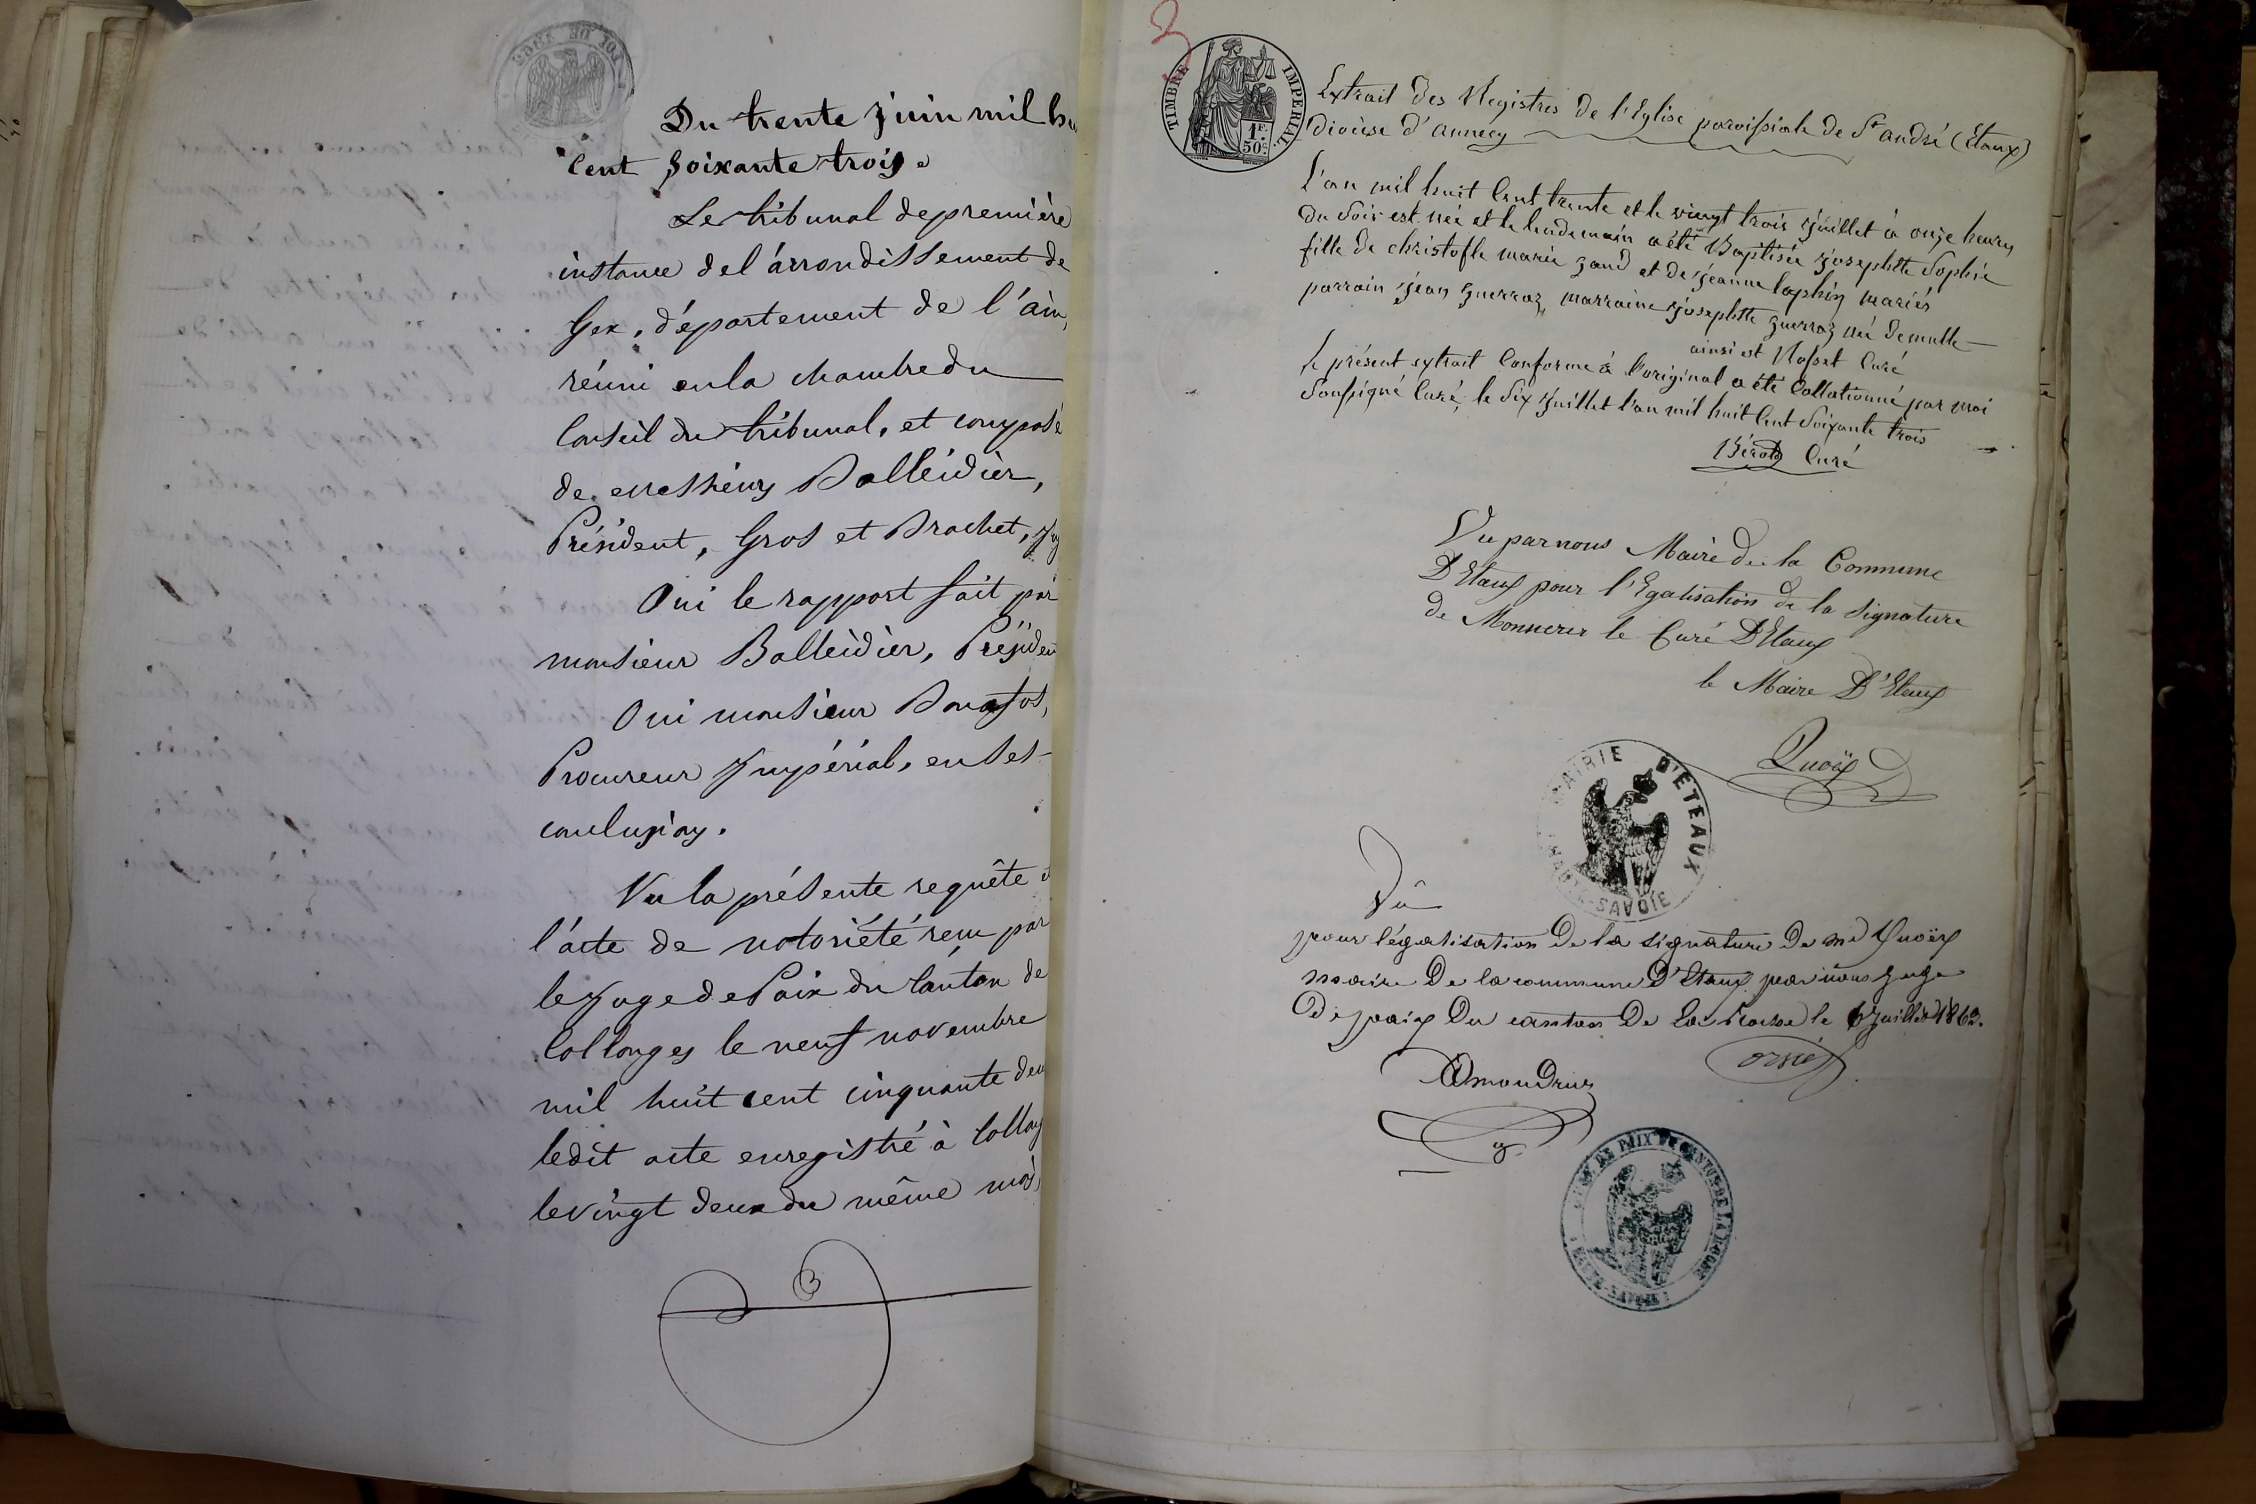 Du trente juin mil hu
Cent soixante trois.
Le tribunal de première
instance de l'arrondissement de
Gex, département de l'ain,
réuni en la chambre du
Conseil du tribunal, et composé
de messieurs Balleidier,
Président, Gros et Brachet, Jug
Oui le rapport fait par
monsieur Balleidier, Présiden
Oui monsieur
Procureur Impérial, en ses
conclusions.
Vu la présente requête et
l'acte de notoriété reçu par
le Juge de Paix du Canton de
Collonges le neuf novembre
mil huit cent cinquante deu
ledit acte enregistré à Collong
le vingt deux du même mois,
3
TIMBRE IMPERIAL
1F. 50C.
Extrait des Registres de l'Eglise paroissiale de St andré (Etaux)
Diocèse d'annecy
L'an mil huit Cent trente et le vingt trois Juillet à onze heures
du Soir est née et le lendemain a été Baptisée josephte Sophie
fille de christofle marie zand et de jeanne laphin mariés
parrain jean guerraz, marraine josephte guerraz née demulle
ainsi est Curé
Le présent extrait Conforme à l'original a été Collationné par moi
Soussigné Curé, le Six Juillet l'an mil huit Cent Soixante trois
Curé
Vu par nous Maire de la Commune
D'Etaux pour l'Egalisation de la signature
de Monsieur le Curé D'Etaux
le Maire D'Etaux
Quoëx
MAIRIE D'ETEAUX
HAUTE-SAVOIE
Vû
pour légalisation De la signature De Mr Quoëx
maire De la commune D'Etaux par nous Juge
De paix Du canton De La Roche le 6 Juillet 1863.
Orsier
JUSTICE DE PAIX DU CANTON DE LA ROCHE
HAUTE-SAVOIE